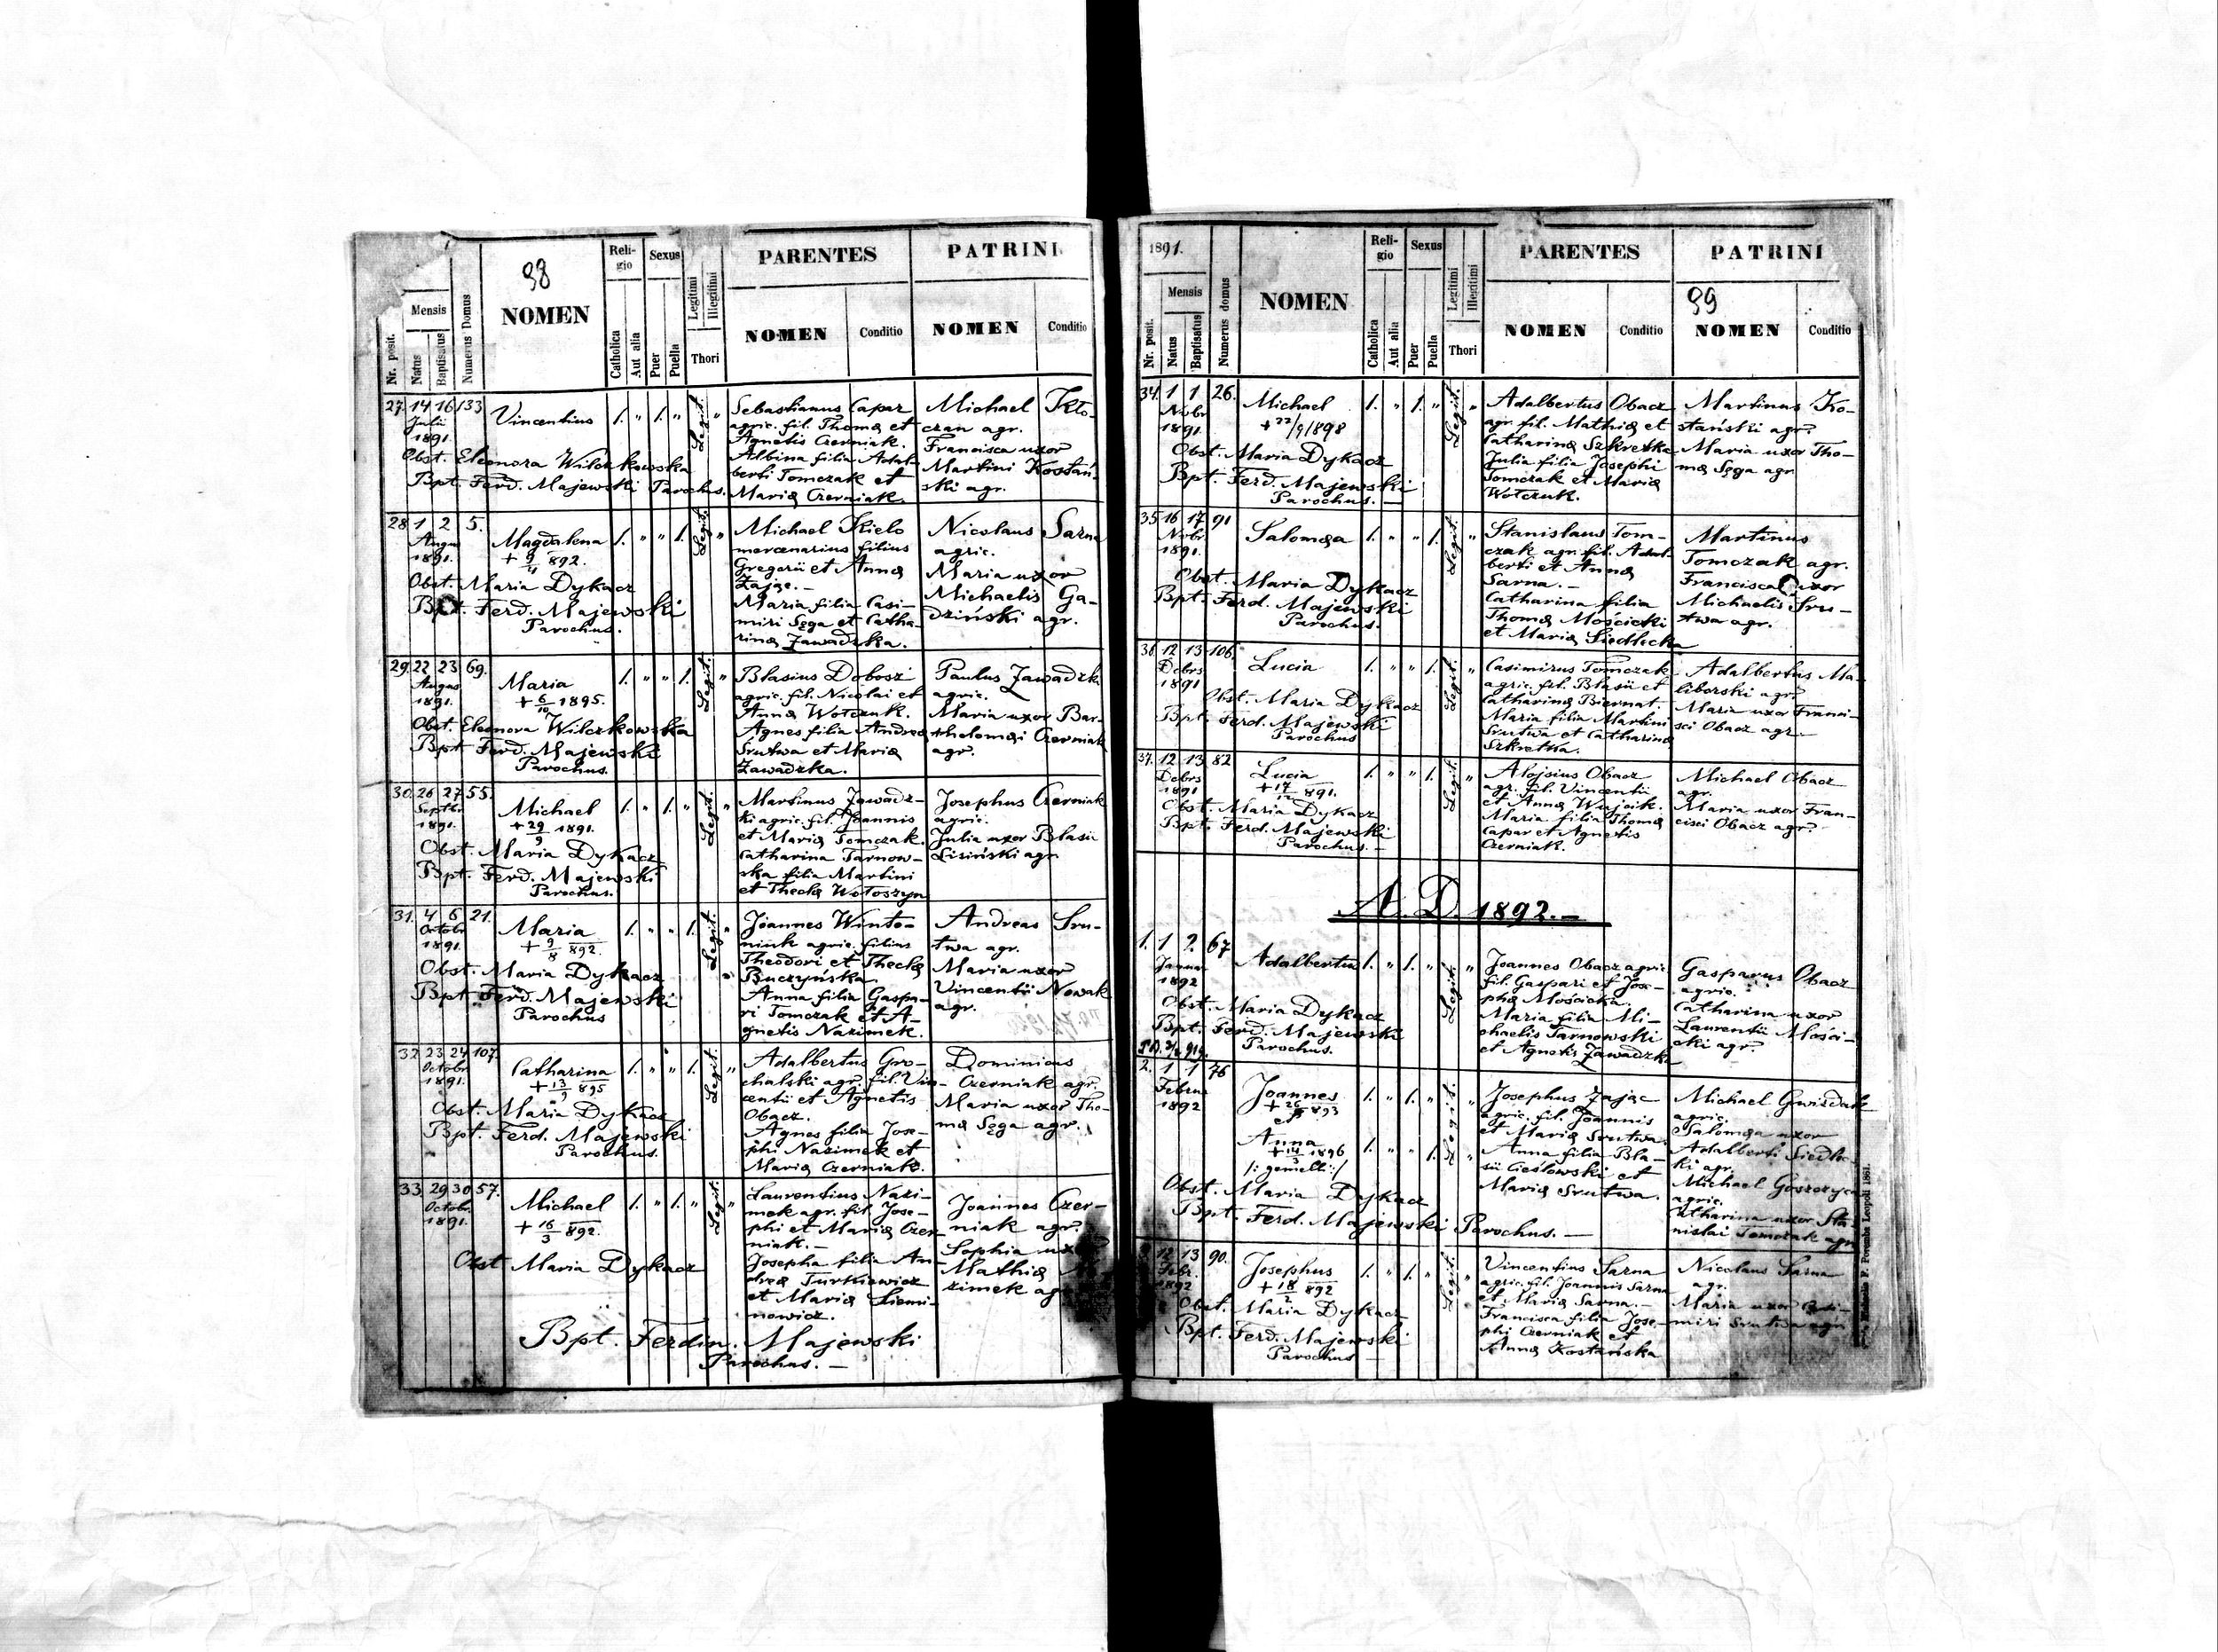 98
Nr. posit.
Mensis
Natus
Baptisatus
Numerus Domus
NOMEN
Religio
Catholica
Aut alia
Sexus
Puer
Puella
Legitimi
Illegitimi
Thori
PARENTES
NOMEN
Conditio
PATRINI
NOMEN
Conditio
27. 14 16 133
Julii
1891.
Vincentius
1. " 1. "
Legit. "
Obst. Eleonora Wilczkowska
Bpt. Ferd. Majewski Parochus.
Sebastianus Capar
agric. fil. Thomæ et
Agnetis Czerniak.
Albina filia Adal-
berti Tomczak et
Mariæ Czerniak.
Michael Kło-
czan agr.
Francisca uxor
Martini Kostań-
ski agr.
28 1 2 5.
Augus
1891.
Magdalena
+ 9/4 892.
1. " " 1.
Legit. "
Obst. Maria Dykacz
Bpt. Ferd. Majewski
Parochus.
Michael Kielo
mercenarius filius
Gregorii et Annæ
Zając. –
Maria filia Casi-
miri Sęga et Catha-
rinæ Zawadzka.
Nicolaus Sarna
agric.
Maria uxor
Michaelis Ga-
dziński agr.
29. 22 23 69.
Augus
1891.
Maria
+ 6/10 1895.
1. " " 1.
Legit. "
Obst. Eleonora Wilczkowska
Bpt Ferd. Majewski
Parochus.
Blasius Dobosz
agric. fil. Nicolai et
Annæ Wołczuk.
Agnes filia Andreæ
Srutwa et Mariæ
Zawadzka.
Paulus Zawadzki
agric.
Maria uxor Bar-
tholomæi Czerniak
agr.
30. 26 27 55.
Septbr.
1891.
Michael
+ 29/9 1891.
1. " 1. "
Legit. "
Obst. Maria Dykacz
Bpt. Ferd. Majewski
Parochus.
Martinus Zawadz-
ki agric. fil. Joannis
et Mariæ Tomczak.
Catharina Tarnow-
ska filia Martini
et Theclæ Wołoszyn
Josephus Czerniak
agric.
Julia uxor Blasii
Lisiński agr.
31. 4 6 21.
Octobr
1891.
Maria
+ 9/8 892.
1. " " 1.
Legit. "
Obst. Maria Dykacz
Bpt. Ferd. Majewski
Parochus
Joannes Winto-
niuk agric. filius
Theodori et Theclæ
Buczyńska.
Anna filia Gaspa-
ri Tomczak et A-
gnetis Nazimek.
Andreas Sru-
twa agr.
Maria uxor
Vincentii Nowak
agr.
32. 23 24 107.
Octobr
1891.
Catharina
+ 13/9 895
1. " " 1.
Legit. "
Obst. Maria Dykacz
Bpt. Ferd. Majewski
Parochus.
Adalbertus Gro-
chalski agr. fil. Vin-
centii et Agnetis
Obacz.
Agnes filia Jose-
phi Nazimek et
Mariæ Czerniak.
Dominicus
Czerniak agr.
Maria uxor Tho-
mæ Sęga agr.
33. 29 30 57.
Octobr.
1891.
Michael
+ 16/3 892.
1. " 1. "
Legit. "
Obst Maria Dykacz
Laurentius Nazi-
mek agr. fil. Jose-
phi et Mariæ Czer-
niak. –
Josepha filia An-
dreæ Turkiewicz
et Mariæ Siemi-
nowicz.
Joannes Czer-
niak agr.
Sophia
Mathiæ
zimek
Bpt. Ferdin. Majewski
Parochus. –
1891.
Nr. posit.
Mensis
Natus
Baptisatus
Numerus domus
NOMEN
Religio
Catholica
Aut alia
Sexus
Puer
Puella
Legitimi
Illegitimi
Thori
PARENTES
NOMEN
Conditio
PATRINI
99
NOMEN
Conditio
34. 1 1 26.
Nobr
1891.
Michael
+ 22/9 1898
1. " 1. "
Legit. "
Obst. Maria Dykacz
Bpt. Ferd. Majewski
Parochus. –
Adalbertus Obacz
agr. fil. Mathiæ et
Catharinæ Szkretka
Julia filia Josephi
Tomczak et Mariæ
Wołczuk.
Martinus Ko-
stański agr.
Maria uxor Tho-
mæ Sęga agr
35 16 17 91
Nobr.
1891.
Salomæa
1. " " 1.
Legit. "
Obst. Maria Dykacz
Bpt. Ferd. Majewski
Parochus.
Stanislaus Tom-
czak agr. fil. Adal-
berti et Annæ
Sarna. –
Catharina filia
Thomæ Mościcki
et Mariæ Siedlecka
Martinus
Tomczak agr.
Francisca uxor
Michaelis Sru-
twa agr.
36. 12 13 106.
Debrs
1891
Lucia
1. " " 1.
Legit. "
Obst. Maria Dykacz
Bpt. Ferd. Majewski
Parochus
Casimirus Tomczak
agric. fil. Blasii et
Catharinæ Biernat.
Maria filia Martini
Srutwa et Catharinæ
Szkretka.
Adalbertus Ma-
liborski agr.
Maria uxor Franci-
sci Obacz agr. –
37. 12 13 82
Debrs
1891
Lucia
+ 17/12 891.
1. " " 1.
Legit. "
Obst. Maria Dykacz
Bpt. Ferd. Majewski
Parochus. –
Alojsius Obacz
agr. fil. Vincentii
et Annæ Wujcik.
Maria filia Thomæ
Capar et Agnetis
Czerniak.
Michael Obacz
agr.
Maria uxor Fran-
cisci Obacz agr.
A. D. 1892. –
1. 1 2. 67
Januar
1892
Adalbertus
1. " 1. "
Legit. "
Obst. Maria Dykacz
Bpt. Ferd. Majewski
Parochus.
Joannes Obacz agric.
fil. Gaspari et Jose-
phæ Mościcka.
Maria filia Mi-
chaelis Tarnowski
et Agnetis Zawadzka
Gasparus Obacz
agric.
Catharina uxor
Laurentii Mości-
cki agr.
2. 1 1 76
Februa
1892
Joannes
893
et
Anna
1896
/: gemelli :/
1. " 1. "
1. " " 1.
Legit.
Obst. Maria Dykacz
Bpt. Ferd. Majewski Parochus. –
Josephus Zając
agric. fil. Joannis
et Mariæ Srutwa.
Anna filia Bla-
sii Cieslowski et
Mariæ Srutwa.
Michael Gwizdak
agric.
Salomæa uxor
Adalberti Siedlec-
ki agr.
Michael Goszczyc
agric.
Catharina uxor Sta-
nislai Tomczak agr.
12 13 90.
Febr.
1892
Josephus
+ 18/2 892
1. " 1. "
Legit. "
Obst. Maria Dykacz
Bpt. Ferd. Majewski
Parochus –
Vincentius Sarna
agric. fil. Joannis Sarna
et Mariæ Sarna. –
Francisca filia Jose-
phi Czerniak et
Annæ Kostańska
Nicolaus Sarna
agr.
Maria uxor Casi-
miri Srutwa agr.
F. Poremba Leopoli 1861.